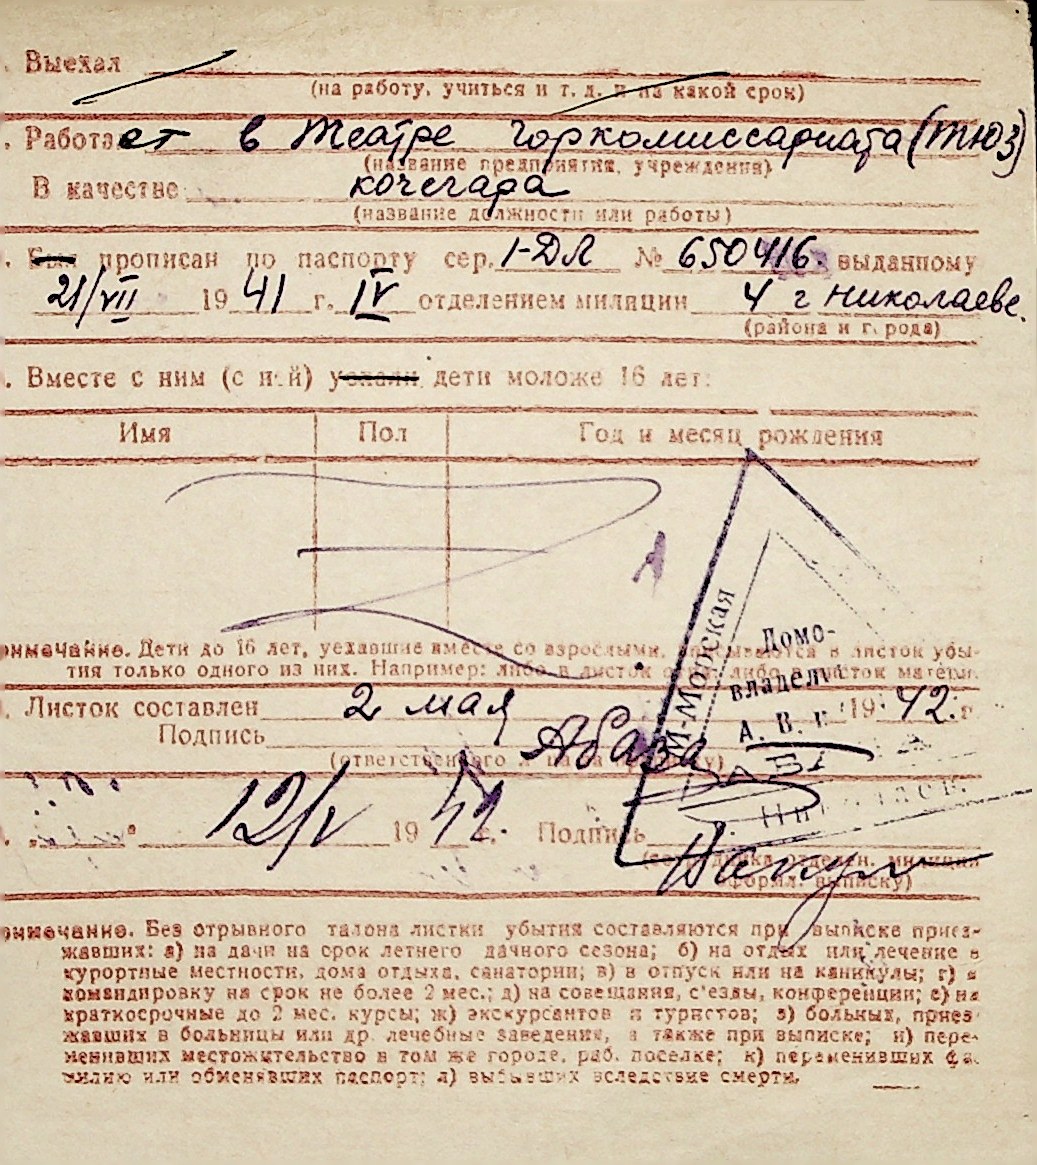 . Выехал
(на работу, учиться и т. д. и на какой срок)
. Работает в театре горкомиссариата (ТЮЗ)
(название предприятия, учреждения)
В качестве кочегара
(название должности или работы)
. Был прописан по паспорту сер. 1-ДЛ № 650416 выданному
21/VII 1941 г. IV отделением милиции 4 г Николаеве.
(района и г. рода)
. Вместе с ним (с ней) уехали дети моложе 16 лет:
Имя Пол Год и месяц рождения
имечание. Дети до 16 лет, уехавшие вместе со взрослыми, вписываются в листок убы-
тия только одного из них. Например: либо в листок отца, либо в листок матери.
. Листок составлен 2 мая 1942 г.
Подпись Абаза
М-Морская
Домо-
владелец
А. В.
12/V 1942 г. Подпись
(сотрудника отделен. милиции
оформл. выписку)
имечание. Без отрывного талона листки убытия составляются при выписке приез-
жавших: а) на дачи на срок летнего дачного сезона; б) на отдых или лечение в
курортные местности, дома отдыха, санатории; в) в отпуск или на каникулы; г) в
командировку на срок не более 2 мес.; д) на совещания, с'езды, конференции; е) на
краткосрочные до 2 мес. курсы; ж) экскурсантов и туристов; з) больных, приез-
жавших в больницы или др. лечебные заведения, а также при выписке; и) пере-
менивших местожительство в том же городе, раб. поселке; к) переменивших фа-
милию или обменявших паспорт; л) выбывших вследствие смерти.